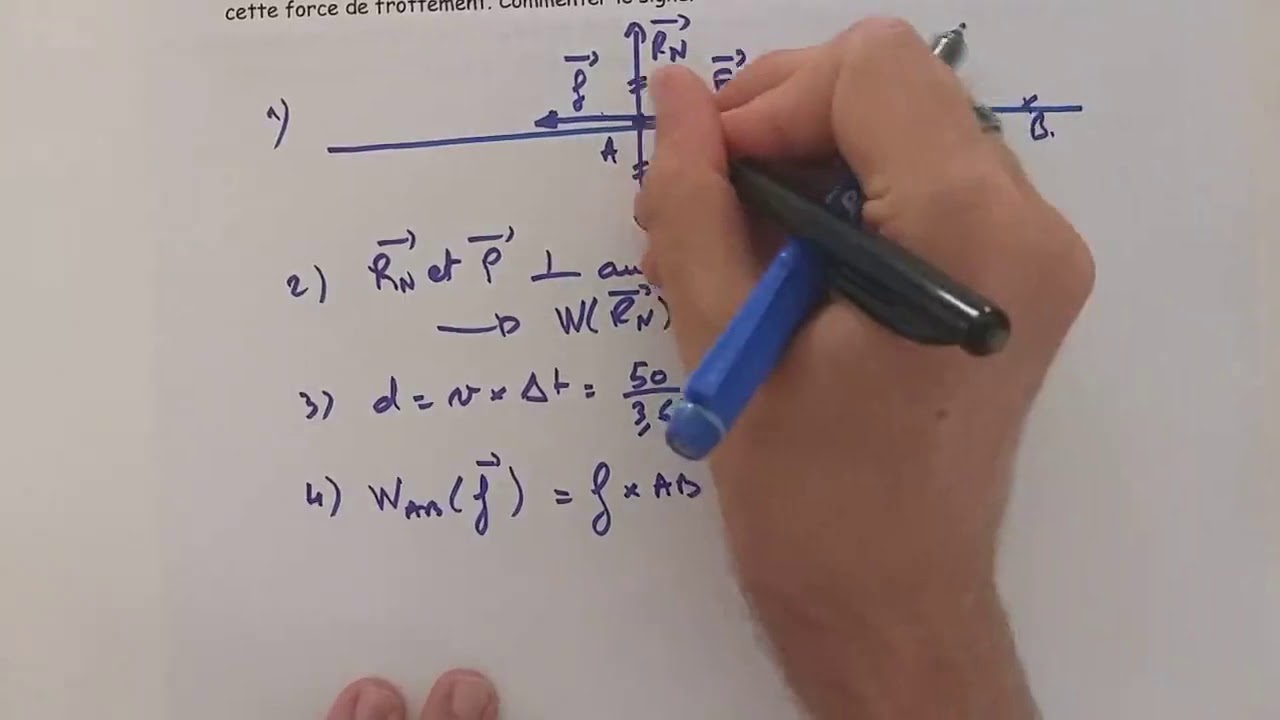 cette force de frottement. Commenter le signe
R_N
f F
1)
A B.
2) R_N et P ⊥ au
→ W(R_N)
3) d = v × Δt = 50/3,6
4) W_AB(f) = f × AB